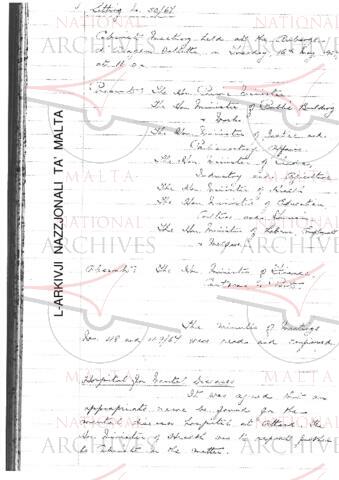 Sitting No. 50/67
Cabinet Meeting held at the Auberge
d'Aragon Valletta on Tuesday, 16th May, 1967
at 11.0
Present: The Hon. Prime Minister
The Hon. Minister of Public Building
& Works
The Hon. Minister of Justice and
Parliamentary Affairs
The Hon. Minister of
Industry and Agriculture
The Hon. Minister of Health
The Hon. Minister of Education,
Culture and Tourism
The Hon. Minister of Labour, Employment
& Welfare
The Hon. Minister of Finance,
Customs & Port
The minutes of Meetings
Nos. 48 and 49/67 were read and confirmed
Hospital for Mental Diseases
It was agreed that an
appropriate name be found for the
mental diseases hospital at Attard. The
Hon Minister of Health was to report further
to Cabinet on the matter.
L-ARKIVJI NAZZJONALI TA' MALTA
NATIONAL
ARCHIVES
MALTA